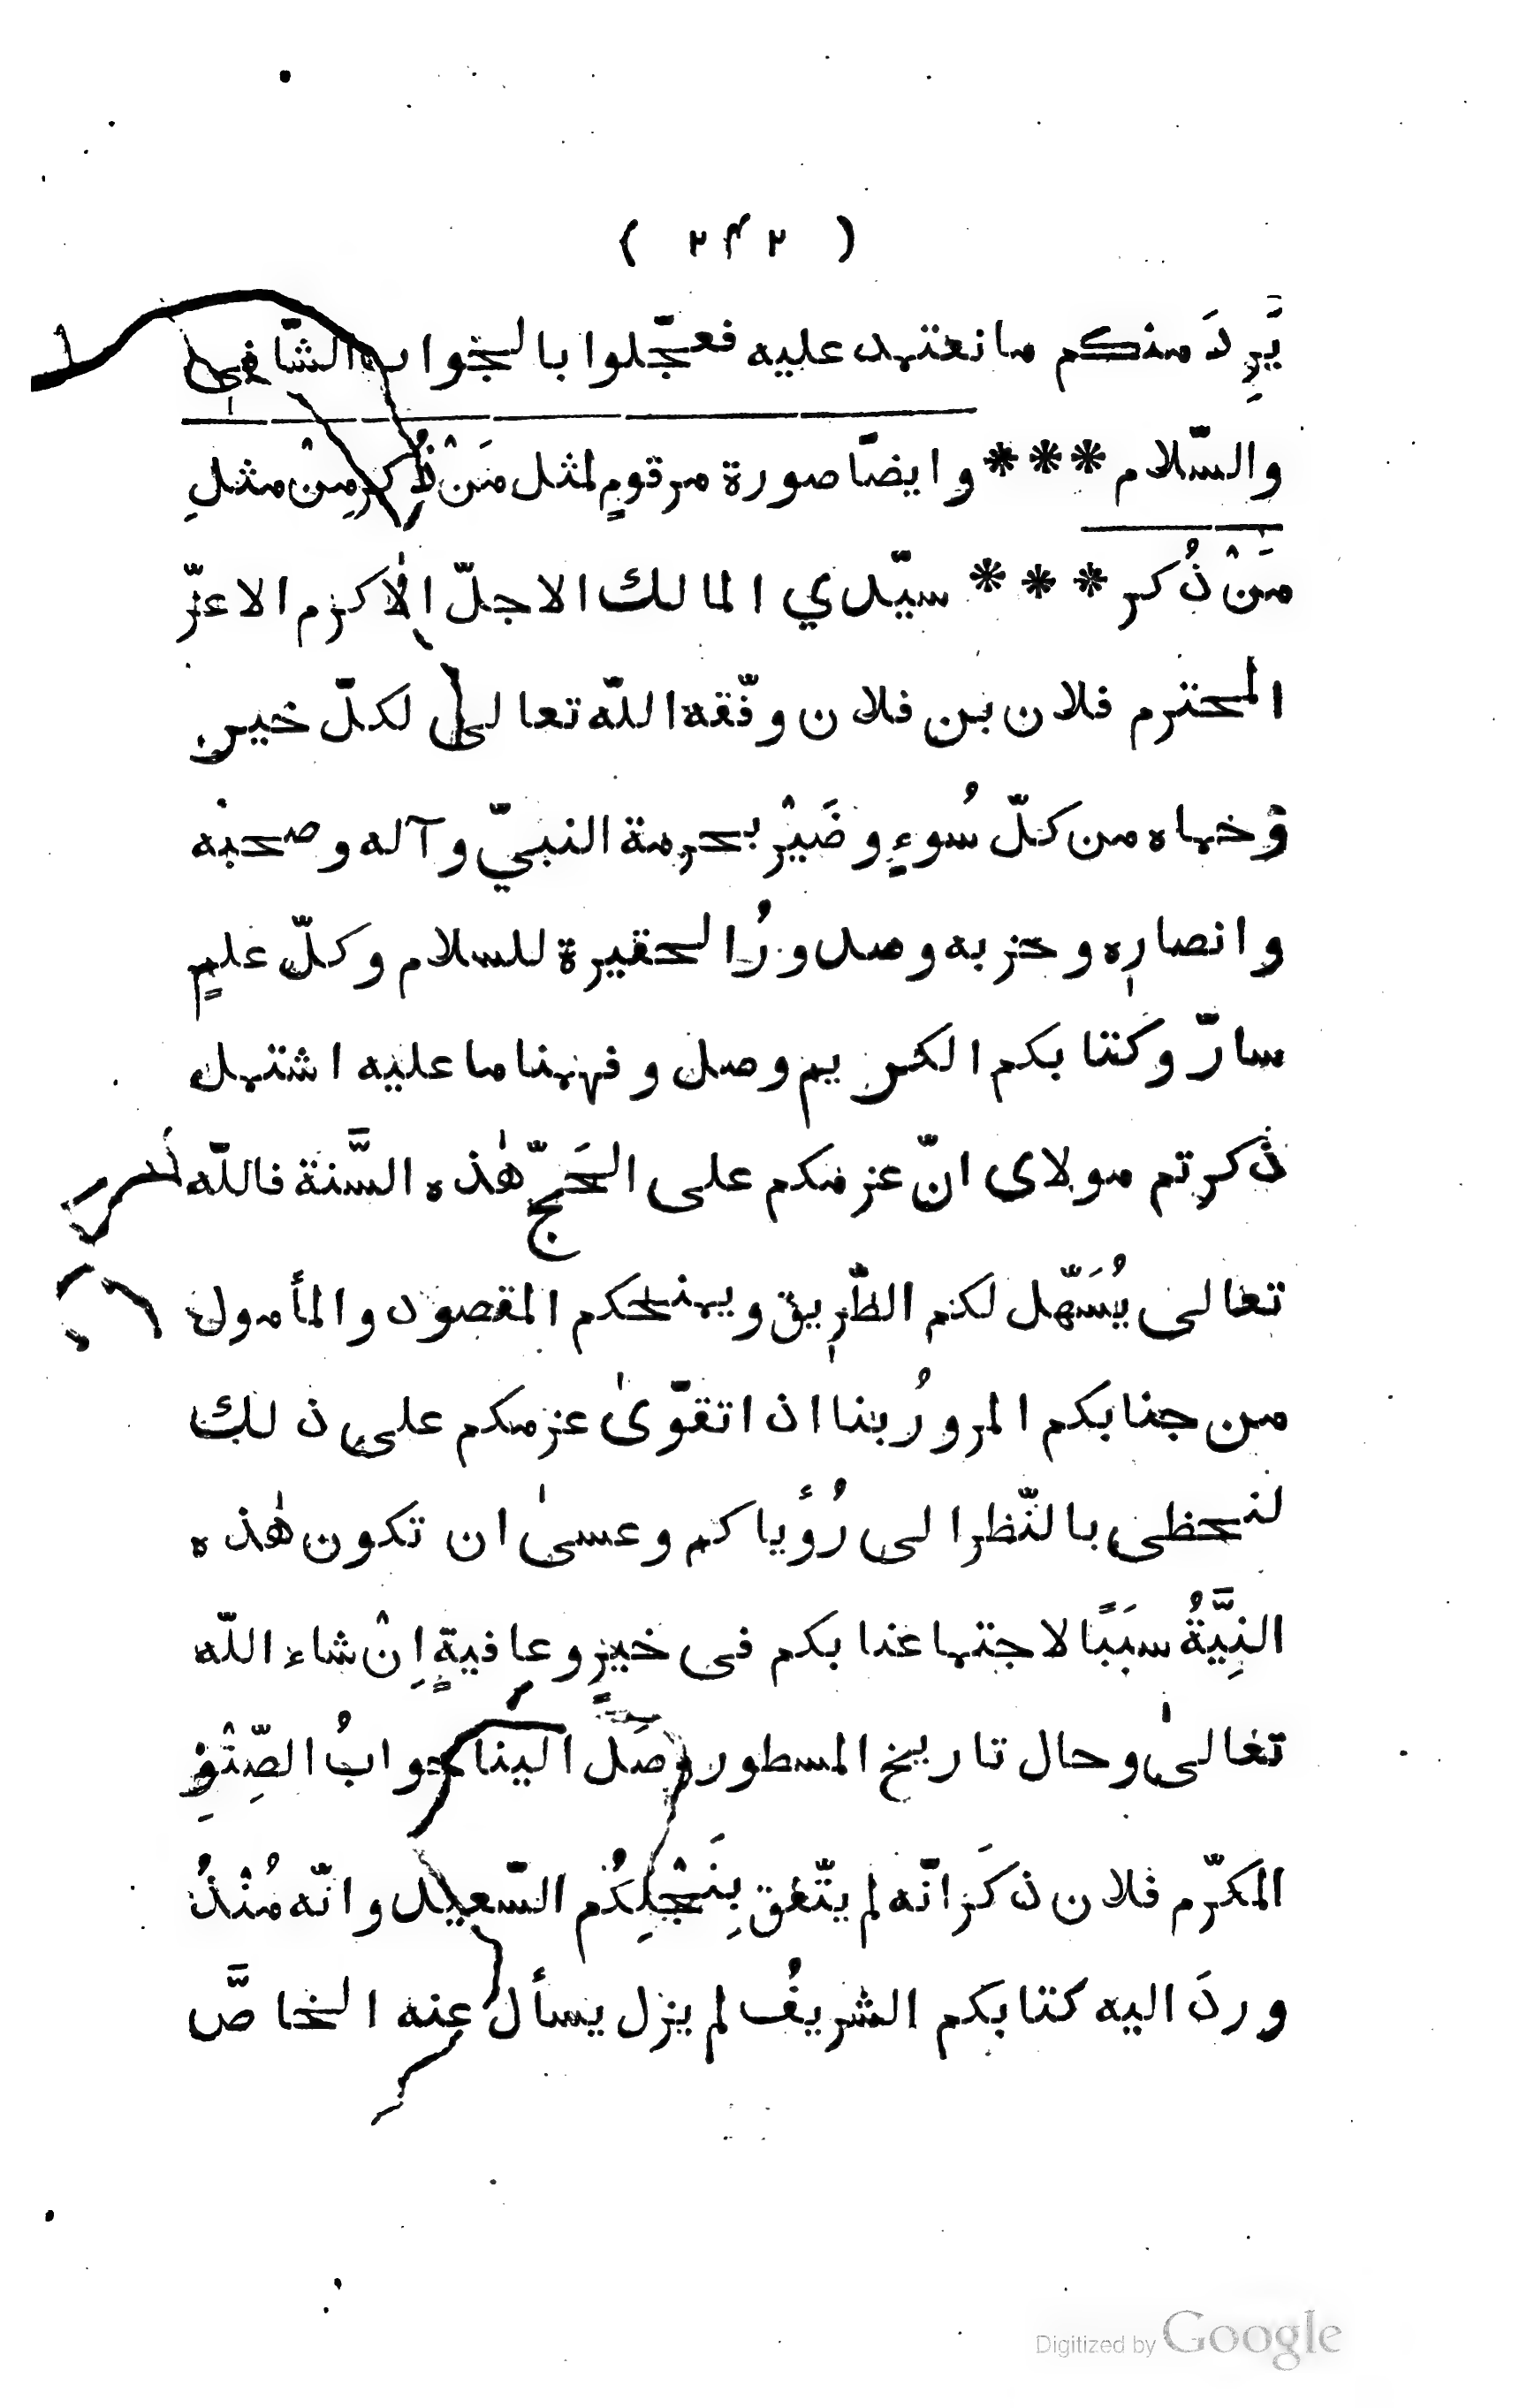 ( ٢٤٢ )
يَّرِدَ منكم ما نعتمد عليه فعجّلوا بالجواب الشّافي
والسّلام *** وايضًا صورة مرقومٍ لمثل مَنْ ذُكر مِنْ مثلِ
مَنْ ذُكر * * * سيّدي المالك الاجلّ الاكرم الاعزّ
المحترم فلان بن فلان وفّقه الله تعالى لكلّ خير
وحماه من كلّ سُوءٍ وضَيْر بحرمة النبيّ وآله وصحبه
وانصاره وحزبه وصدورُ الحقيرة للسلام وكلّ علمٍ
سارّ وكتابكم الكريم وصل وفهمنا ما عليه اشتمل
ذكرتم مولاى انّ عزمكم على الحَجّ هٰذه السَّنة فالله
تعالى يُسَهّل لكم الطّريق ويمنحكم المقصود والمأمول
من جنابكم المرورُ بنا اذا تقوّىٰ عزمكم على ذلك
لنحظى بالنّظر الى رُؤياكم وعسىٰ ان تكون هٰذه
النِّيَّةُ سبَبًا لاجتماعنا بكم فى خيرٍ وعافيةٍ اِنْ شاء الله
تعالىٰ وحال تاريخ المسطور وصَلَ الينا جوابُ الصِّنْوِ
المكرّم فلان ذكَر انّه لم يتّفق بِنَجْلِكُم السّعيد وانّه مُنْذُ
وردَ اليه كتابكم الشريفُ لم يزل يسأل عنه الخاصَّ
Digitized by Google